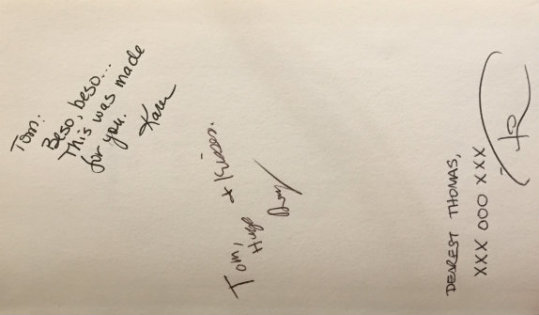 Tom:
Beso, beso...
This was made
for you.
Karen
Tom,
Hugs + Kisses.
DEAREST THOMAS,
XXX OOO XXX